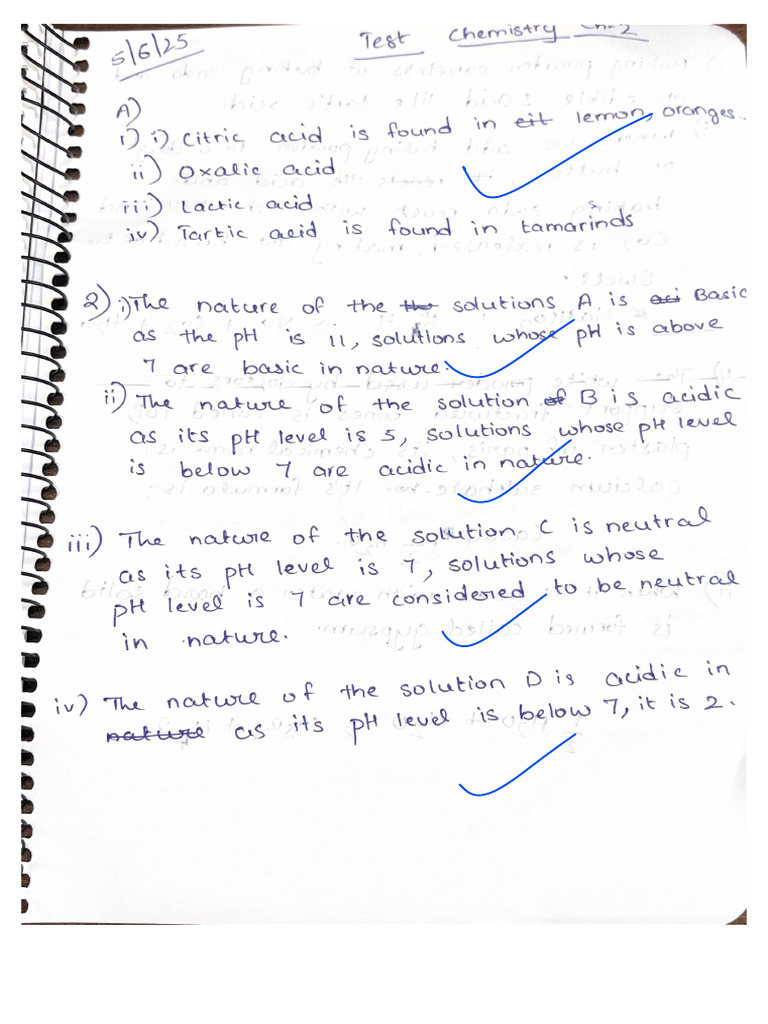 5/6/25
Test Chemistry Ch-2
A)
1) i) Citric acid is found in cit lemon, oranges..
ii) Oxalic acid
iii) Lactic acid
iv) Tartic acid is found in tamarinds
2) i) The nature of the the solutions A is aci Basic
as the pH is 11, solutions whose pH is above
7 are basic in nature.
ii) The nature of the solution of B is acidic
as its pH level is 5, solutions whose pH level
is below 7 are acidic in nature.
iii) The nature of the solution C is neutral
as its pH level is 7, solutions whose
pH level is 7 are considered to be neutral
in nature.
iv) The nature of the solution D is acidic in
nature as its pH level is below 7, it is 2.